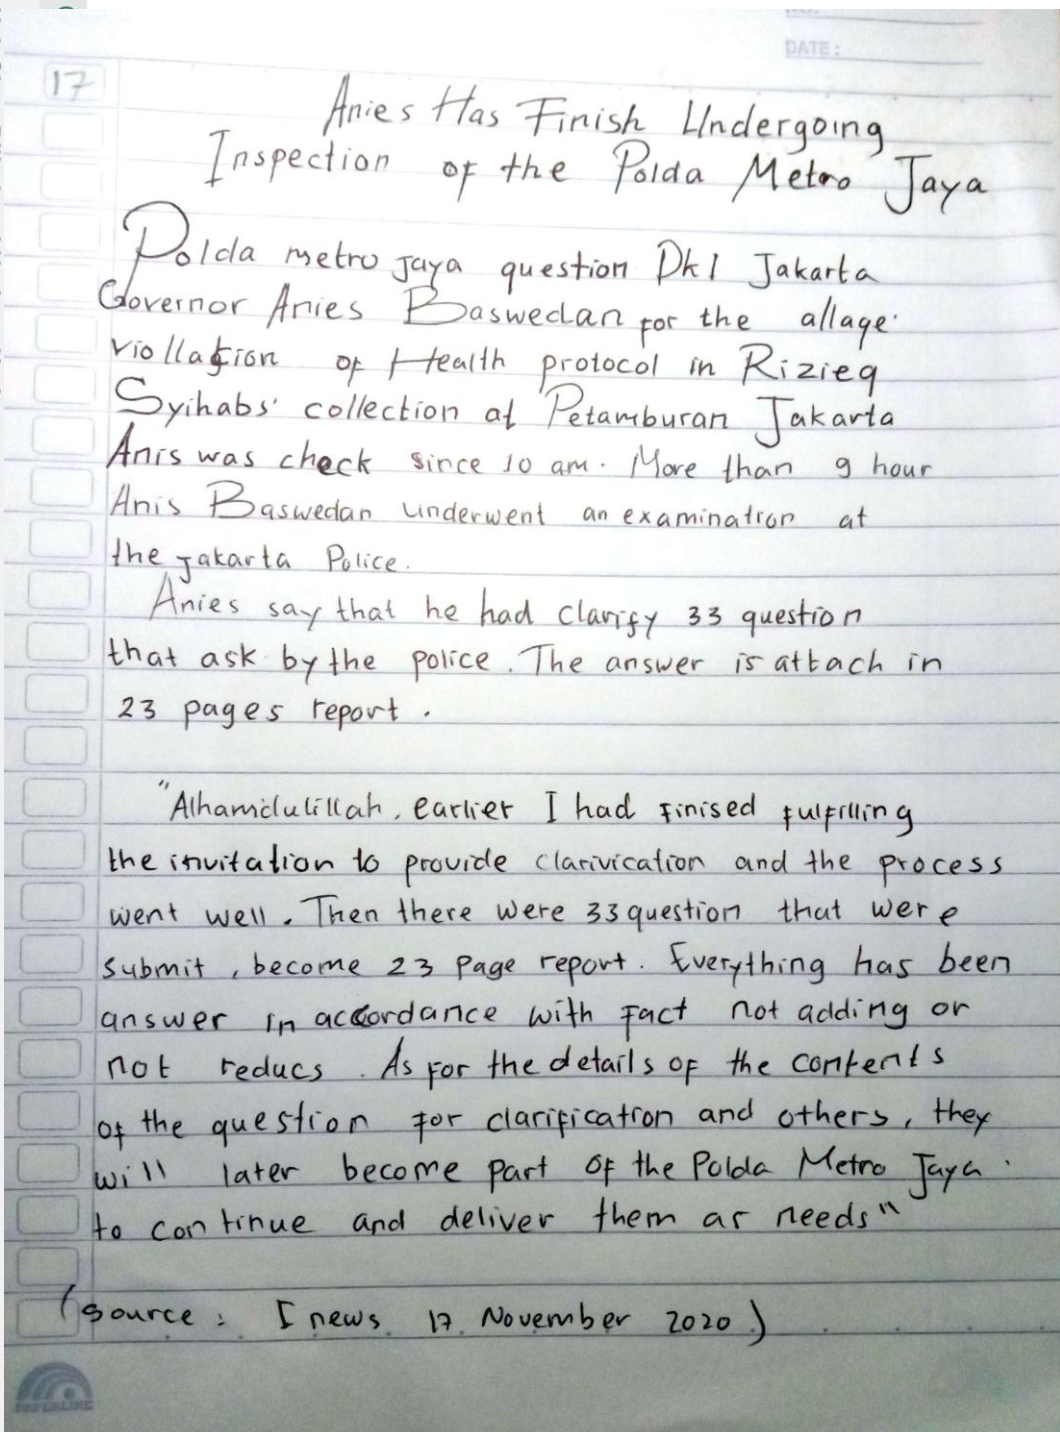 DATE:
17
Anies Has Finish Undergoing
Inspection of the Polda Metro Jaya
Polda metro jaya question DkI Jakarta
Governor Anies Baswedan for the allage
viollation of Health protocol in Rizieq
Syihabs' collection at Petamburan Jakarta
Anis was check since 10 am. More than 9 hour
Anis Baswedan underwent an examination at
the jakarta Police.
Anies say that he had clarify 33 question
that ask by the police. The answer is attach in
23 pages report.
"Alhamdulillah, earlier I had finised fulfilling
the invitation to provide clarivication and the process
went well. Then there were 33 question that were
submit, become 23 page report. Everything has been
answer in accordance with fact not adding or
not reducs. As for the details of the contents
of the question for clarification and others, they
will later become part of the Polda Metro Jaya.
to continue and deliver them as needs"
(source: Inews 17 November 2020)
PAPERLINE